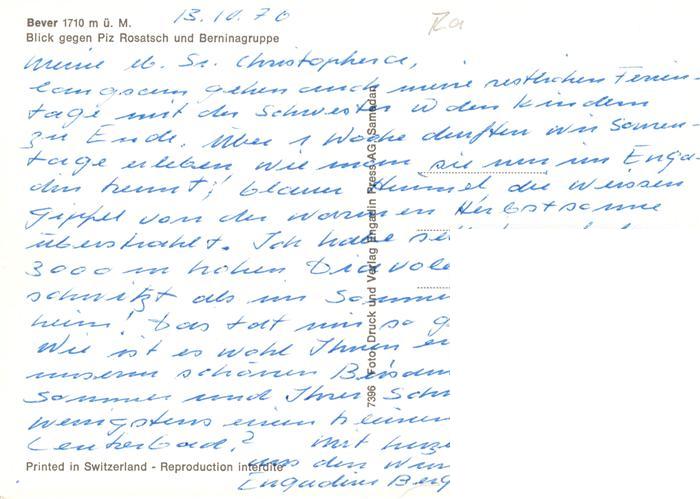 Bever 1710 m ü. M.
Blick gegen Piz Rosatsch und Berninagruppe
13.10.70
Meine lb. Sr. Christophera,
langsam gehen auch meine restlichen Ferien-
tage mit der Schwester u den Kindern
zu Ende. Über 1 Woche durften wir Sonnen-
tage erleben wie man sie nur im Enga-
din kennt; blauer Himmel, die weissen
Gipfel von der warmen Herbstsonne
überstrahlt. Ich habe
3000 m hohen Diavole
schwitzt als im Somme
heim! Das tat mir so g
Wie ist es wohl Ihnen er
unserm schönen
Sommer und Ihrer Schw
wenigstens einen kleinen
Leukerbad? Mit
aus den
Engadiner Berg
7396 Foto, Druck und Verlag Engadin Press AG, Samedan
Printed in Switzerland - Reproduction interdite